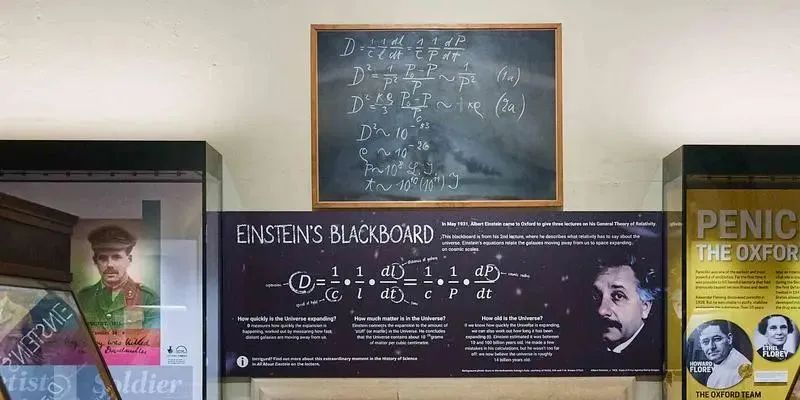 D = 1/c 1/l dl/dt = 1/c 1/P dP/dt
D² = 1/P² P₀-P/P ~ 1/P² (1a)
D² = κρ/3 P₀-P/P ~ κρ (2a)
D² ~ 10⁻⁵³
ρ ~ 10⁻²⁶
P ~ 10⁸ L. J.
t ~ 10¹⁰ (10¹¹) J
EINSTEIN'S BLACKBOARD
In May 1931, Albert Einstein came to Oxford to give three lectures on his General Theory of Relativity.
This blackboard is from his 2nd lecture, where he describes what relativity has to say about the
universe. Einstein's equations relate the galaxies moving away from us to space expanding,
on cosmic scales.
D = 1/c • 1/l • dl/dt = 1/c • 1/P • dP/dt
expansion
speed of light
distance of galaxies
cosmic radius
How quickly is the Universe expanding?
D measures how quickly the expansion is
happening, worked out by measuring how fast
distant galaxies are moving away from us.
How much matter is in the Universe?
Einstein connects the expansion to the amount of
'stuff' (or matter) in the Universe. He concludes
that the Universe contains about 10⁻²⁶ grams
of matter per cubic centimetre.
How old is the Universe?
If we know how quickly the Universe is expanding,
we can also work out how long it has been
expanding (t). Einstein estimated it was between
10 and 100 billion years old. He made a few
mistakes in his calculations, but he wasn't too far
off: we now believe the universe is roughly
14 billion years old.
i
Intrigued? Find out more about this extraordinary moment in the History of Science
in All About Einstein on the lectern.
was killed
Soldier
PENIC
THE OXFOR
HOWARD
FLOREY
ETHEL
FLOREY
THE OXFORD TEAM